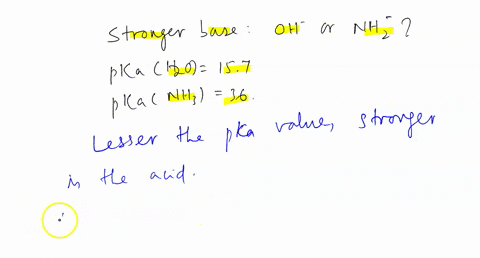 Stronger base: OH⁻ or NH₂⁻?
pKa (H₂O) = 15.7
pKa (NH₃) = 36.
Lesser the pKa value, stronger
is the acid.